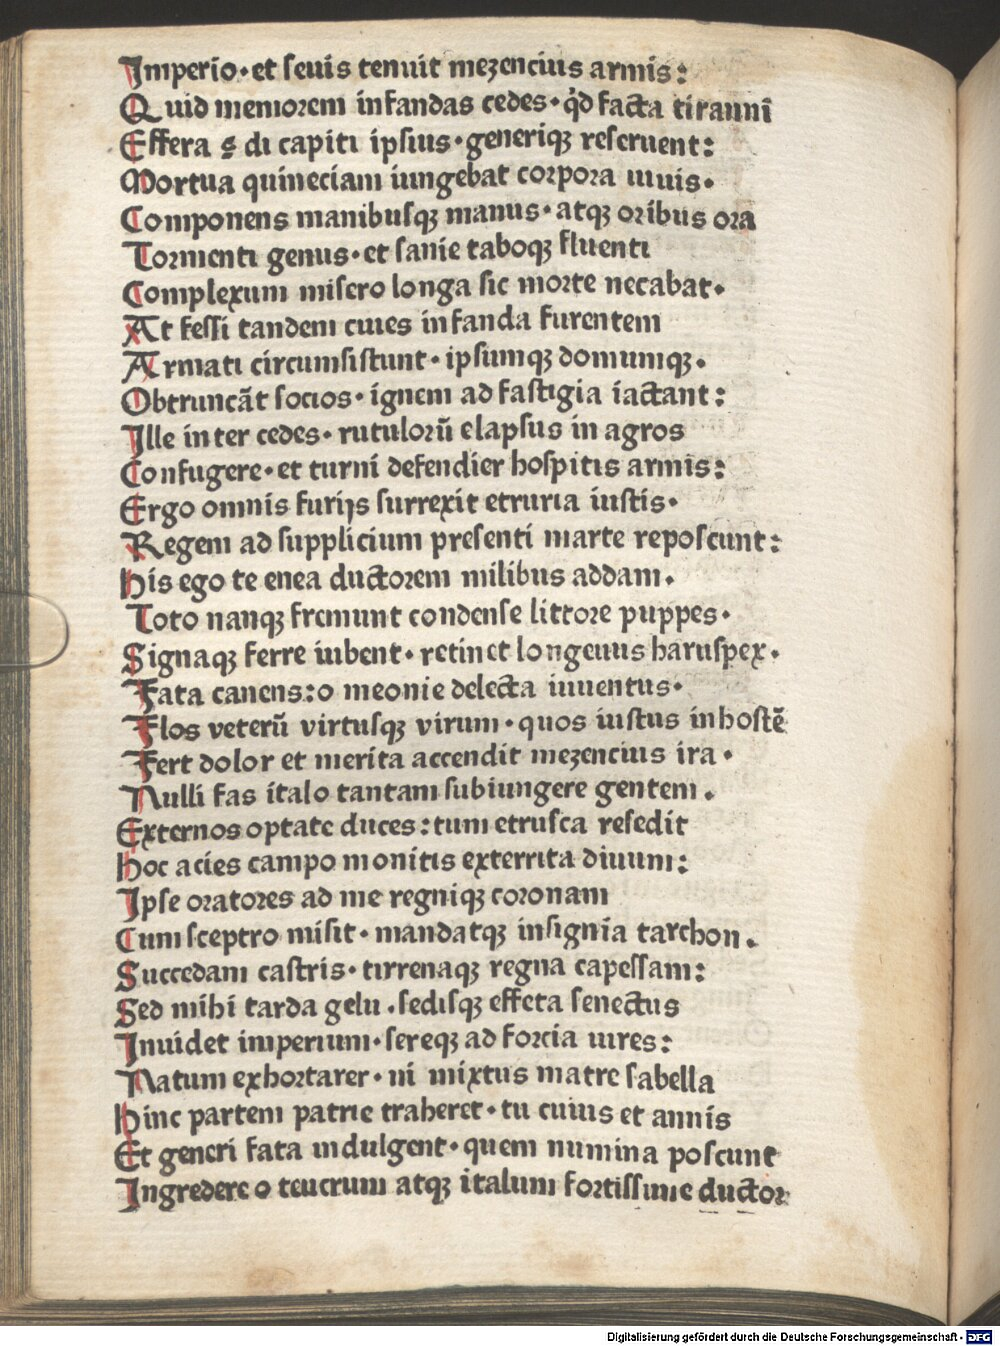 Imperio · et seuis tenuit mezencius armis :
Quid memorem infandas cedes · qd̓ facta tiranni
Effera ⁊ di capiti ipsius · generiqꝫ reseruent :
Mortua quineciam iungebat corpora uiuis ·
Componens manibusqꝫ manus · atqꝫ oribus ora
Tormenti genus · et sanie taboqꝫ fluenti
Complexum misero longa sic morte necabat ·
At fessi tandem ciues infanda furentem
Armati circumsistunt · ipsumqꝫ domumqꝫ ·
Obtruncāt socios · ignem ad fastigia iactant :
Ille inter cedes · rutulorū elapsus in agros
Confugere · et turni defendier hospitis armis :
Ergo omnis furijs surrexit etruria iustis ·
Regem ad supplicium presenti marte reposcunt :
His ego te enea ductorem milibus addam ·
Toto nanqꝫ fremunt condense littore puppes ·
Signaqꝫ ferre iubent · retinet longeuus haruspex ·
Fata canens : o meonie delecta iuuentus ·
Flos veterū virtusqꝫ virum · quos iustus in hostē
Fert dolor et merita accendit mezencius ira ·
Nulli fas italo tantam subiungere gentem ·
Externos optate duces : tum etrusca resedit
Hoc acies campo monitis exterrita diuum :
Ipse oratores ad me regniqꝫ coronam
Cum sceptro misit · mandatqꝫ insignia tarchon ·
Succedam castris · tirrenaqꝫ regna capessam :
Sed mihi tarda gelu · sedisqꝫ effeta senectus
Inuidet imperium · sereqꝫ ad forcia uires :
Natum exhortarer · ni mixtus matre sabella
Hinc partem patrie traheret · tu cuius et annis
Et generi fata indulgent · quem numina poscunt
Ingredere o teucrum atqꝫ italum fortissime ductor
Digitalisierung gefördert durch die Deutsche Forschungsgemeinschaft · DFG